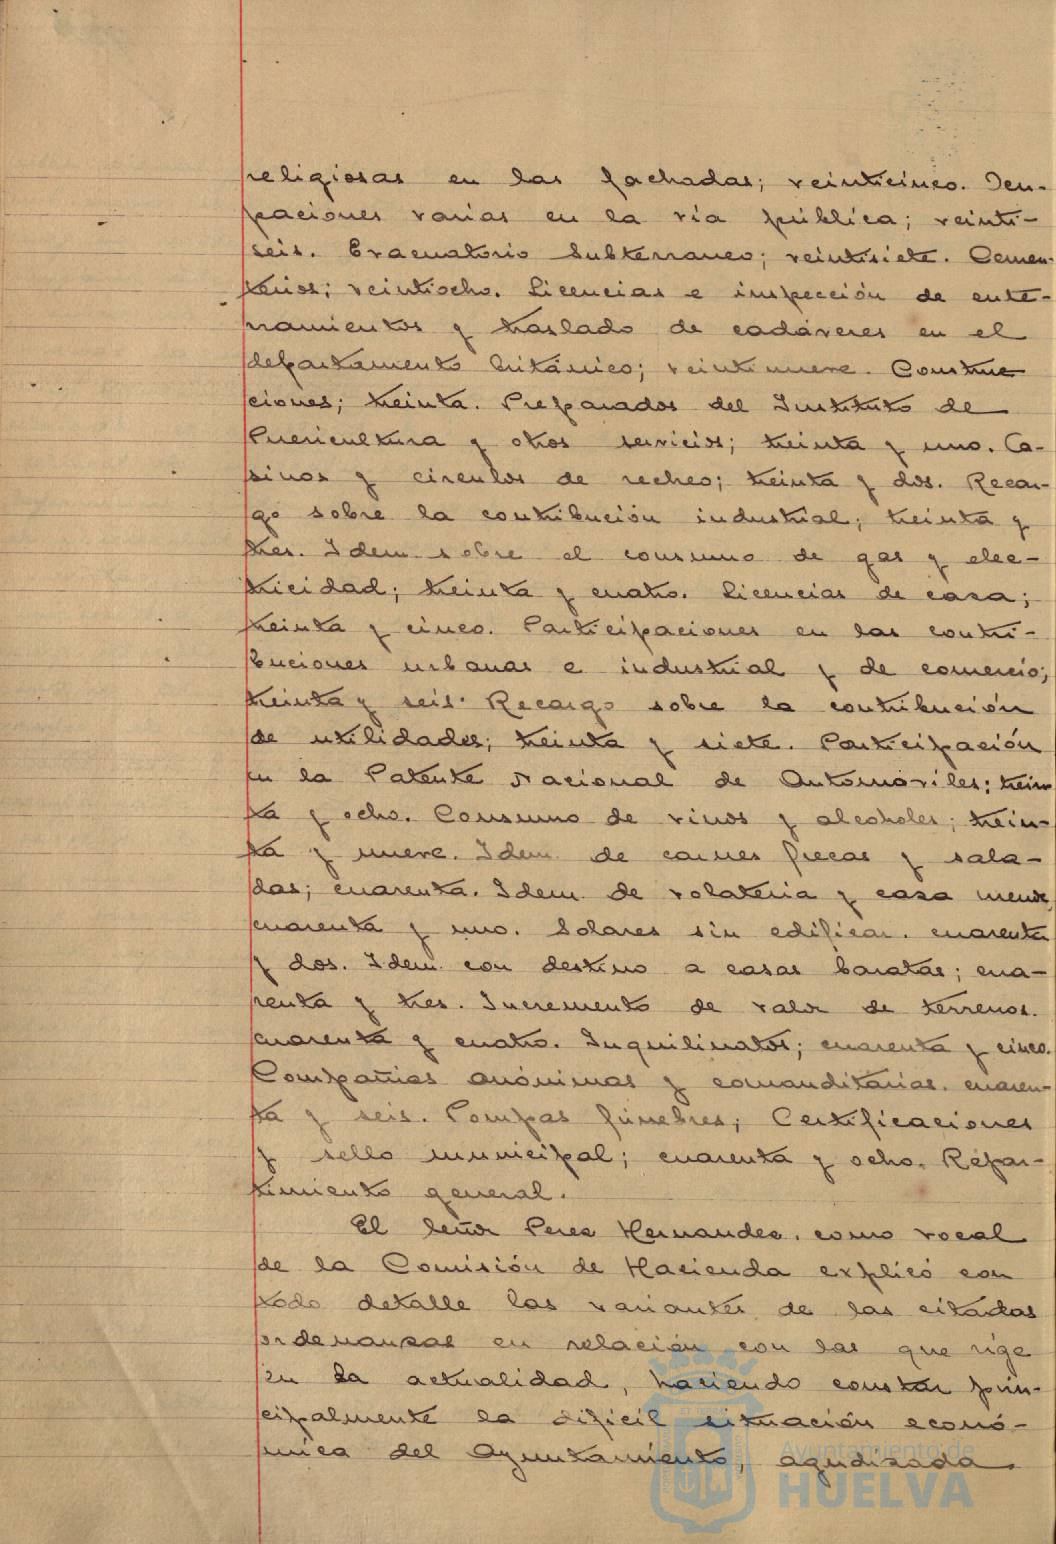 religiosas en las fachadas; veinticinco. Ocu-
paciones varias en la vía pública; veinti-
seis. Evacuatorio Subterraneo; veintisiete. Cemen-
terios; veintiocho. Licencias e inspección de ente-
rramientos y traslado de cadáveres en el
departamento británico; veintinueve. Construc
ciones; treinta. Preparados del Instituto de
Puericultura y otros servicios; treinta y uno. Ca-
sinos y circulos de recreo; treinta y dos. Recar-
go sobre la contribución industrial; treinta y
tres. Idem sobre el consumo de gas y elec-
tricidad; treinta y cuatro. Licencias de caza;
treinta y cinco. Participaciones en las contri-
buciones urbanas e industrial y de comercio;
treinta y seis. Recargo sobre la contribución
de utilidades; treinta y siete. Participación
en la Patente Nacional de Automóviles; trein
ta y ocho. Consumo de vinos y alcoholes; trein-
ta y nueve. Idem de carnes frecas y sala-
das; cuarenta. Idem de volateria y caza menor,
cuarenta y uno. Solares sin edificar. cuarenta
y dos. Idem con destino a casas baratas; cua-
renta y tres. Incremento de valor de terrenos.
cuarenta y cuatro. Inquilinatos; cuarenta y cinco.
Compañias anónimas y comanditarias. cuaren-
ta y seis. Pompas fúnebres; Certificaciones
y sello municipal; cuarenta y ocho. Repar-
timiento general.
El Señor Perez Hernandez. como vocal
de la Comisión de Hacienda explicó con
todo detalle las variantes de las citadas
ordenanzas en relación con las que rige
en la actualidad, haciendo constar prin-
cipalmente la dificil situación econó-
mica del Ayuntamiento, agudizada
Ayuntamiento de
HUELVA